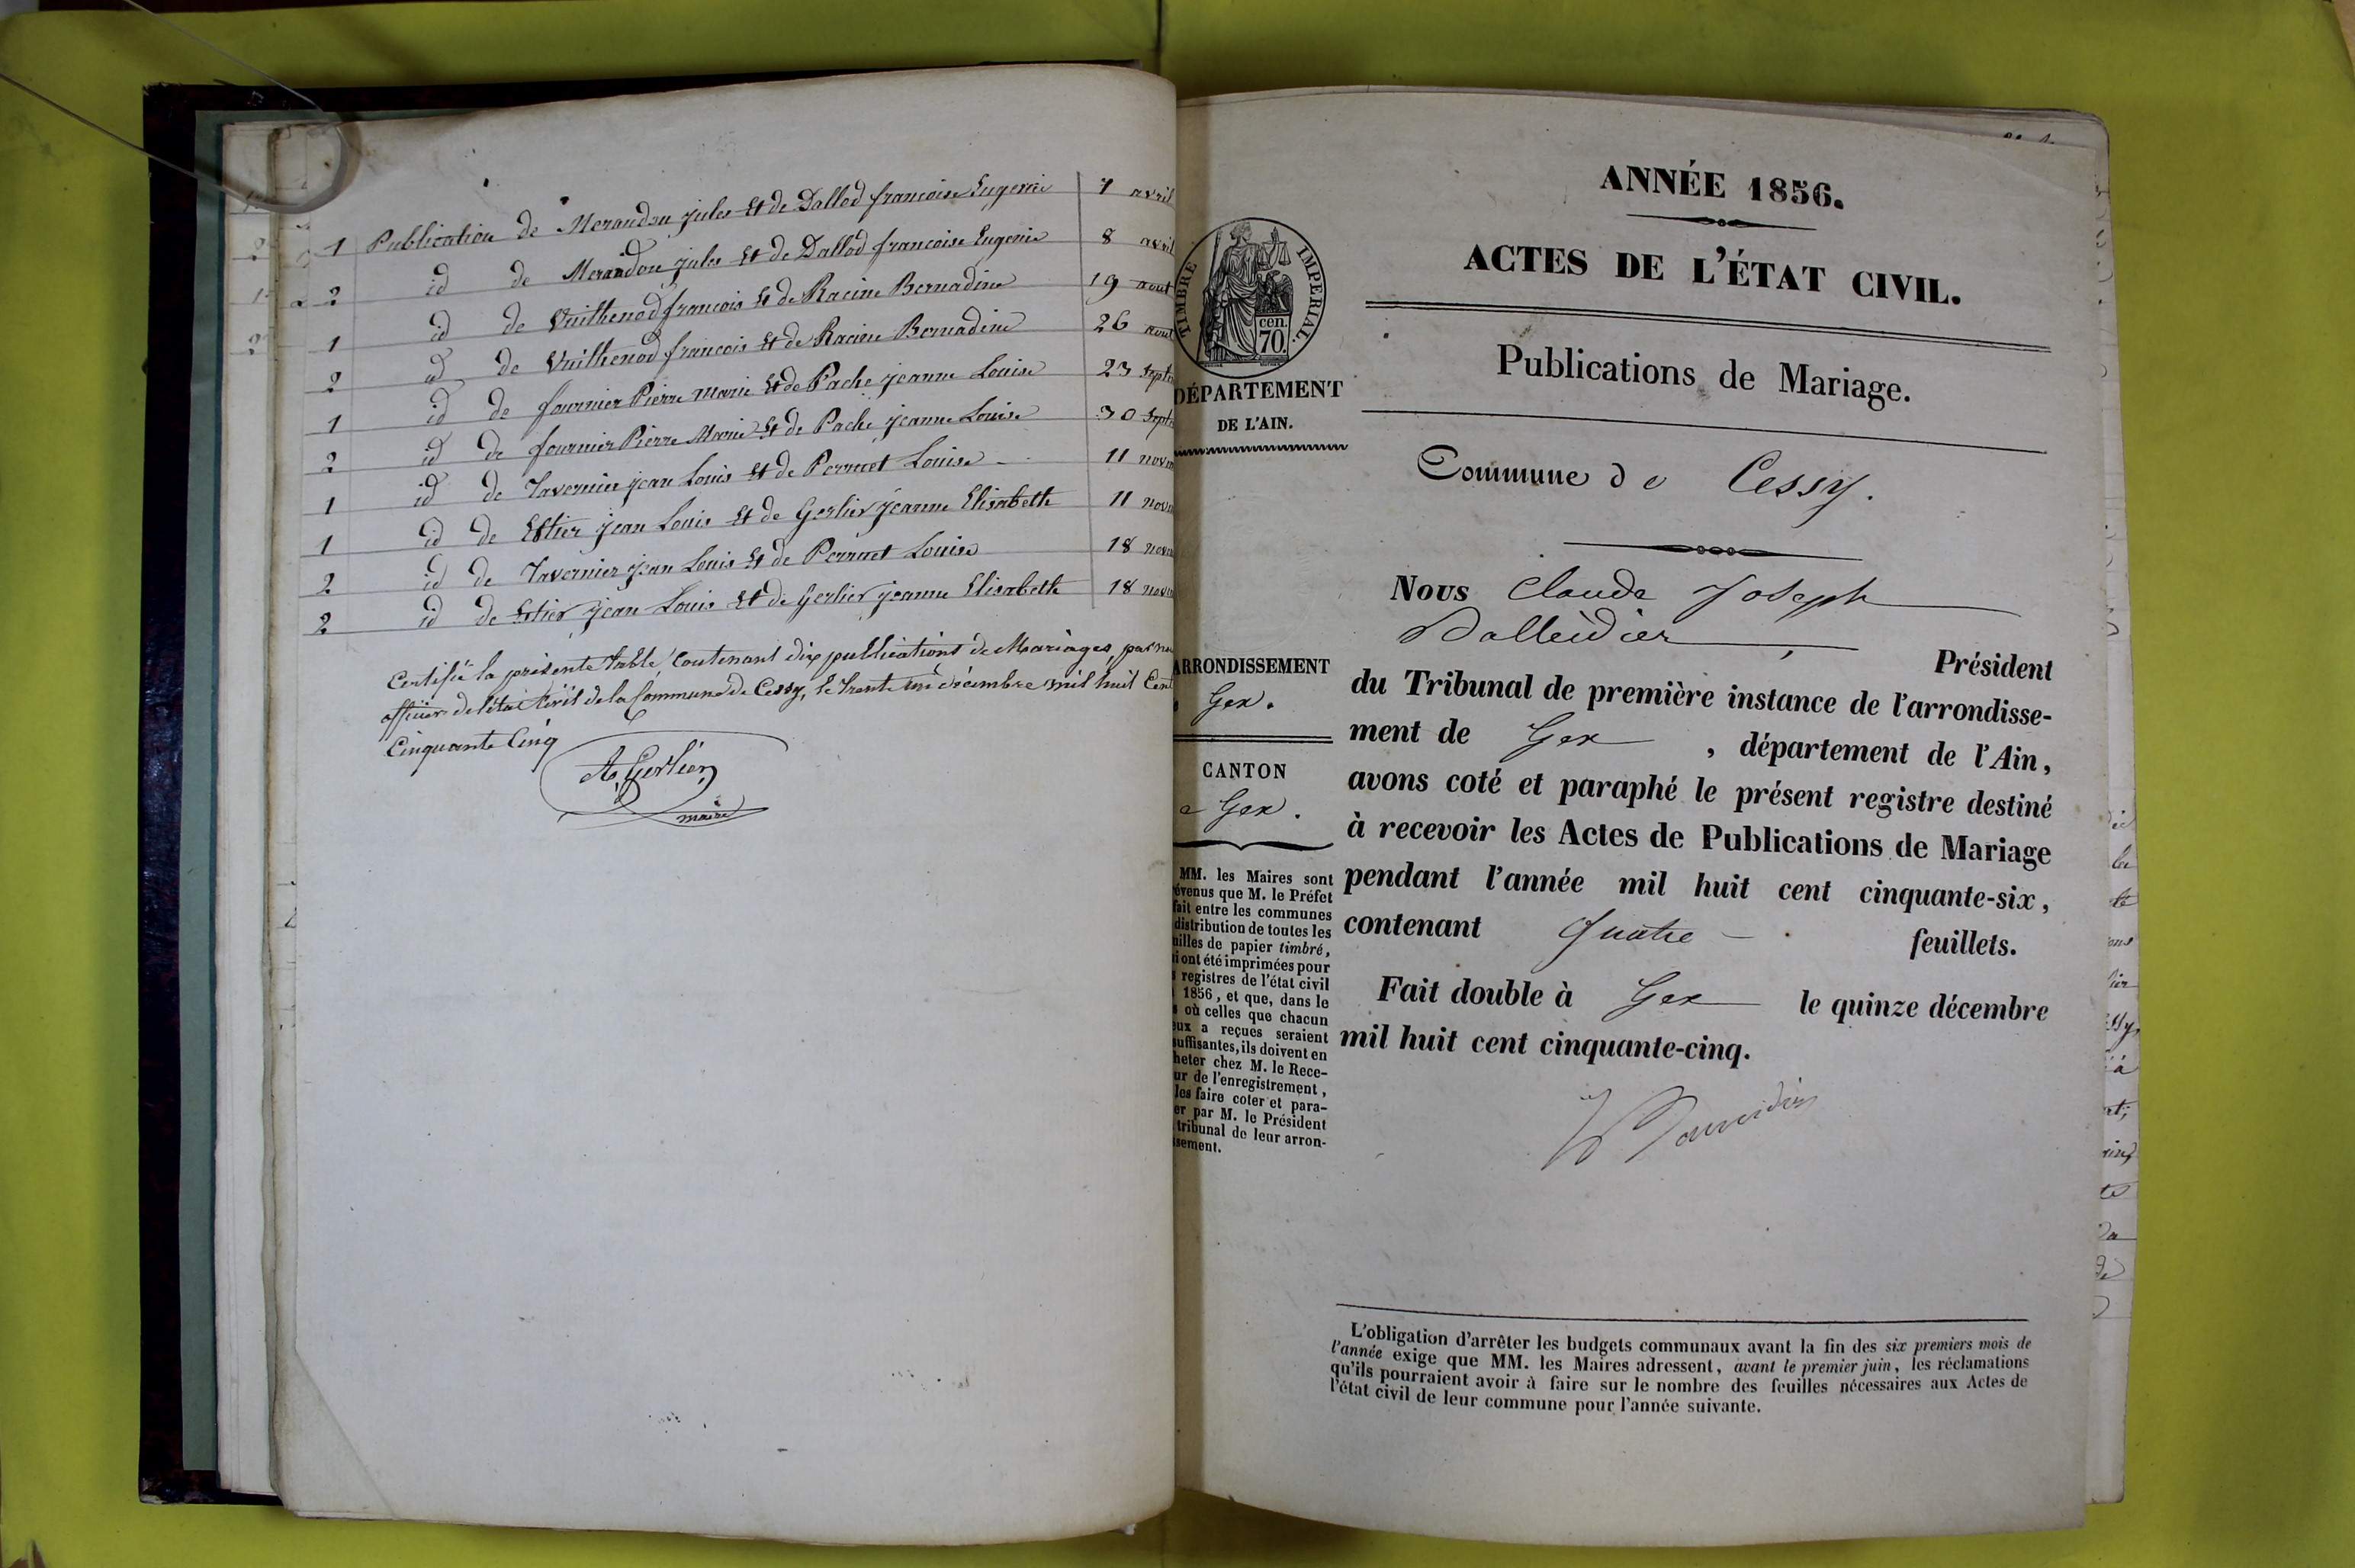 1 Publication de Merandon jules Et de Dallod francoise Eugenie 7 avril
2 id de Merandon jules Et de Dallod francoise Eugenie 8 avril
1 id de Vuithenod francois Et de Racine Bernadine 19 aout
2 id de Vuithenod francois Et de Racine Bernadine 26 aout
1 id de fournier Pierre Marie Et de Pache jeanne Louise 23 Septe
2 id de fournier Pierre Marie Et de Pache jeanne Louise 30 Septe
1 id de Tavernier jean Louis Et de Perruet Louise 11 novem
1 id de Estier jean Louis Et de Gerlier jeanne Elisabeth 11 nove
2 id de Tavernier jean Louis Et de Perruet Louise 18 nove
2 id de Estier jean Louis Et de Gerlier jeanne Elisabeth 18 nove
Certifié la présente table, Contenant dix publications de Mariages, par no
officier de l'état Civil de la Commune de Cessy, le trente un décembre mil huit Cent
Cinquante Cinq
A. Gerlier
maire
ANNÉE 1856.
ACTES DE L'ÉTAT CIVIL.
Publications de Mariage.
TIMBRE IMPERIAL.
cen.
70.
DÉPARTEMENT
DE L'AIN.
Commune de Cessy.
ARRONDISSEMENT
Gex.
CANTON
e Gex.
MM. les Maires sont
évenus que M. le Préfet
fait entre les communes
distribution de toutes les
uilles de papier timbré,
i ont été imprimées pour
s registres de l'état civil
1856, et que, dans le
s où celles que chacun
eux a reçues seraient
suffisantes, ils doivent en
heter chez M. le Rece-
ur de l'enregistrement,
les faire coter et para-
er par M. le Président
tribunal de leur arron-
sement.
Nous Claude Joseph
Dalléidier, Président
du Tribunal de première instance de l'arrondisse-
ment de Gex, département de l'Ain,
avons coté et paraphé le présent registre destiné
à recevoir les Actes de Publications de Mariage
pendant l'année mil huit cent cinquante-six,
contenant Quatre feuillets.
Fait double à Gex le quinze décembre
mil huit cent cinquante-cinq.
L'obligation d'arrêter les budgets communaux avant la fin des six premiers mois de
l'année exige que MM. les Maires adressent, avant le premier juin, les réclamations
qu'ils pourraient avoir à faire sur le nombre des feuilles nécessaires aux Actes de
l'état civil de leur commune pour l'année suivante.